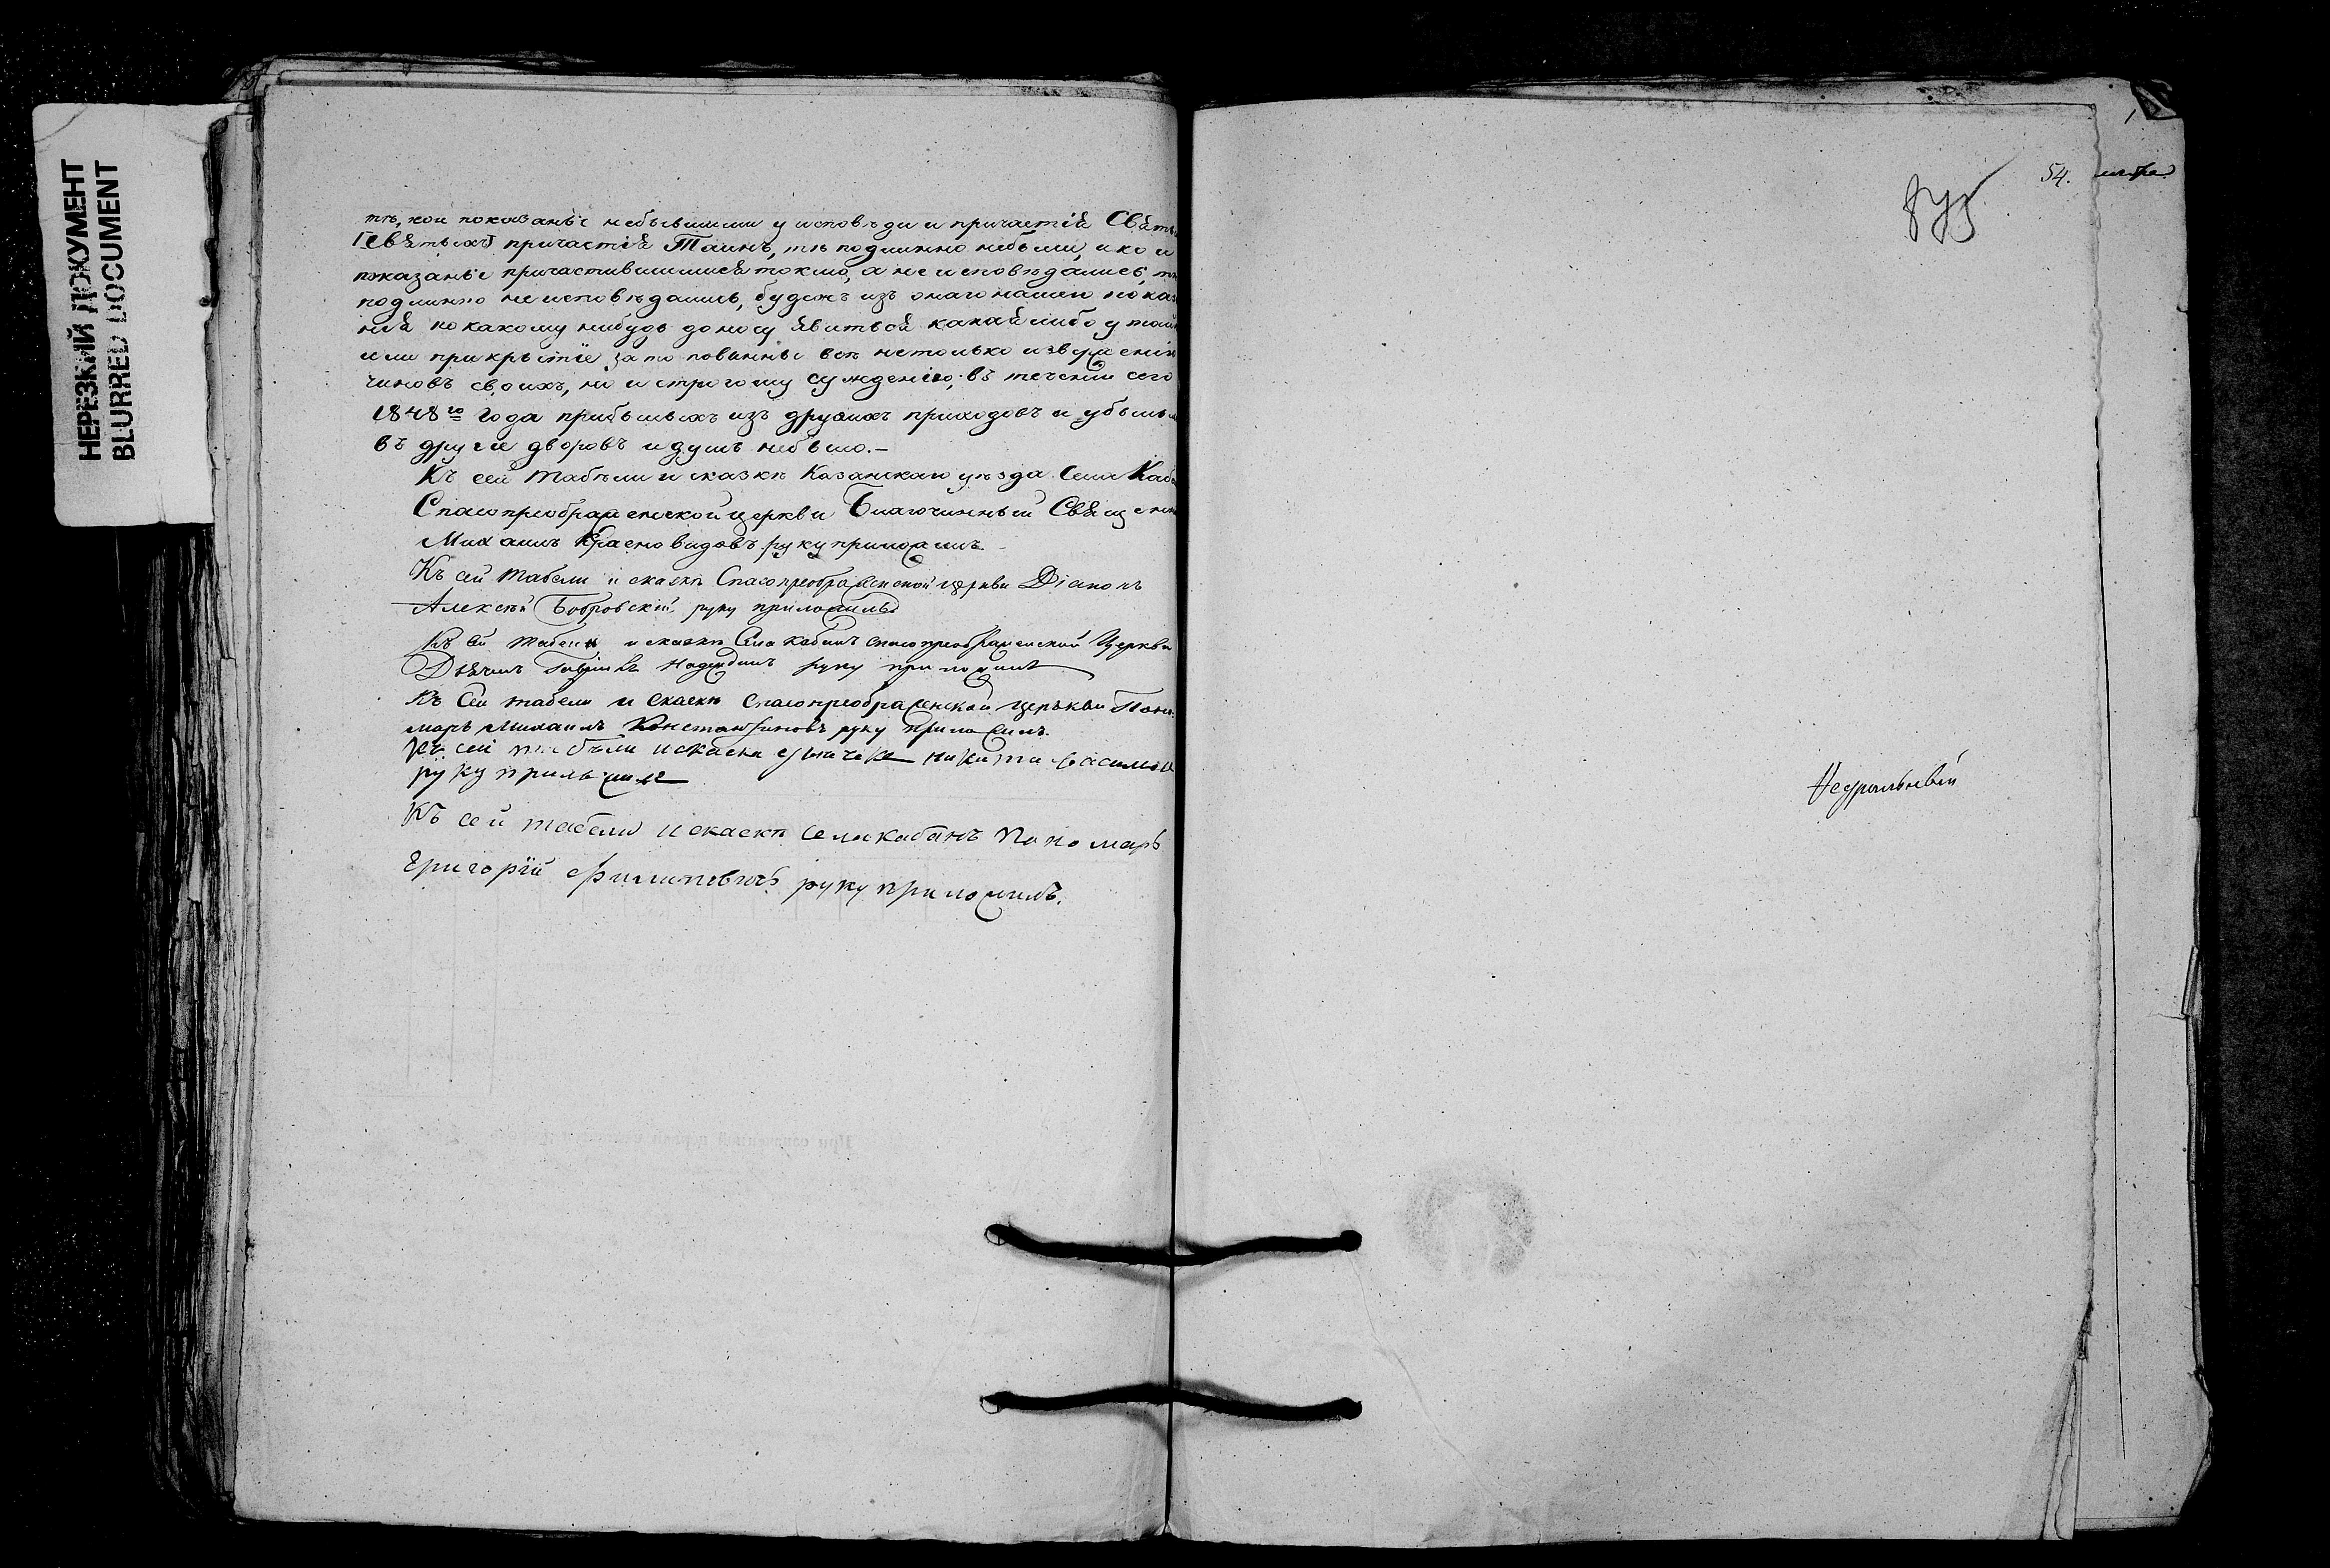 НЕРЕЗКИЙ ДОКУМЕНТ
BLURRED DOCUMENT
тѣ, кои показаны небывшими у исповѣди и причастія Святы
[Святыхъ] причастія Таинъ, тѣ подлинно небыли, и ко и
показаны причастившимися токмо, а не исповѣдались, тѣ
подлинно не исповѣдались, будежъ изъ онаго нашего показа
нія по какому нибудь доносу явиться какая либо утай
или прикрытіе, за то повинны всѣ нетолько извержені
чиновъ своихъ, но и строгому сужденію; въ теченіи сего
1848го года прибылыхъ изъ другихъ приходовъ и убылы
въ другіе дворовъ и душъ небыло.—
Къ сей табѣли и сказкѣ Казанскаго уѣзда Села Каба
Спасопреображенской церкви Благочинный Священн
Михаилъ Красновидовъ руку приложилъ.
Къ сей табели и скаскѣ Спасопреображенской церкви Діаконъ
Алексѣй Бобровскій руку приложилъ.
Къ сей табели и скаскѣ Села Кабанъ Спасопреображенской Церкви
Дьячекъ руку приложилъ
Къ Сей табели и Скаскѣ Спасопреображенской церькви Поно-
марь Михаилъ Константиновъ руку приложилъ.
Къ сей табѣли искаски Никита
руку приложилъ
Къ сей табели искаскѣ села Кабанъ Пономарь
Григорій Филиповъ руку приложилъ.
54.